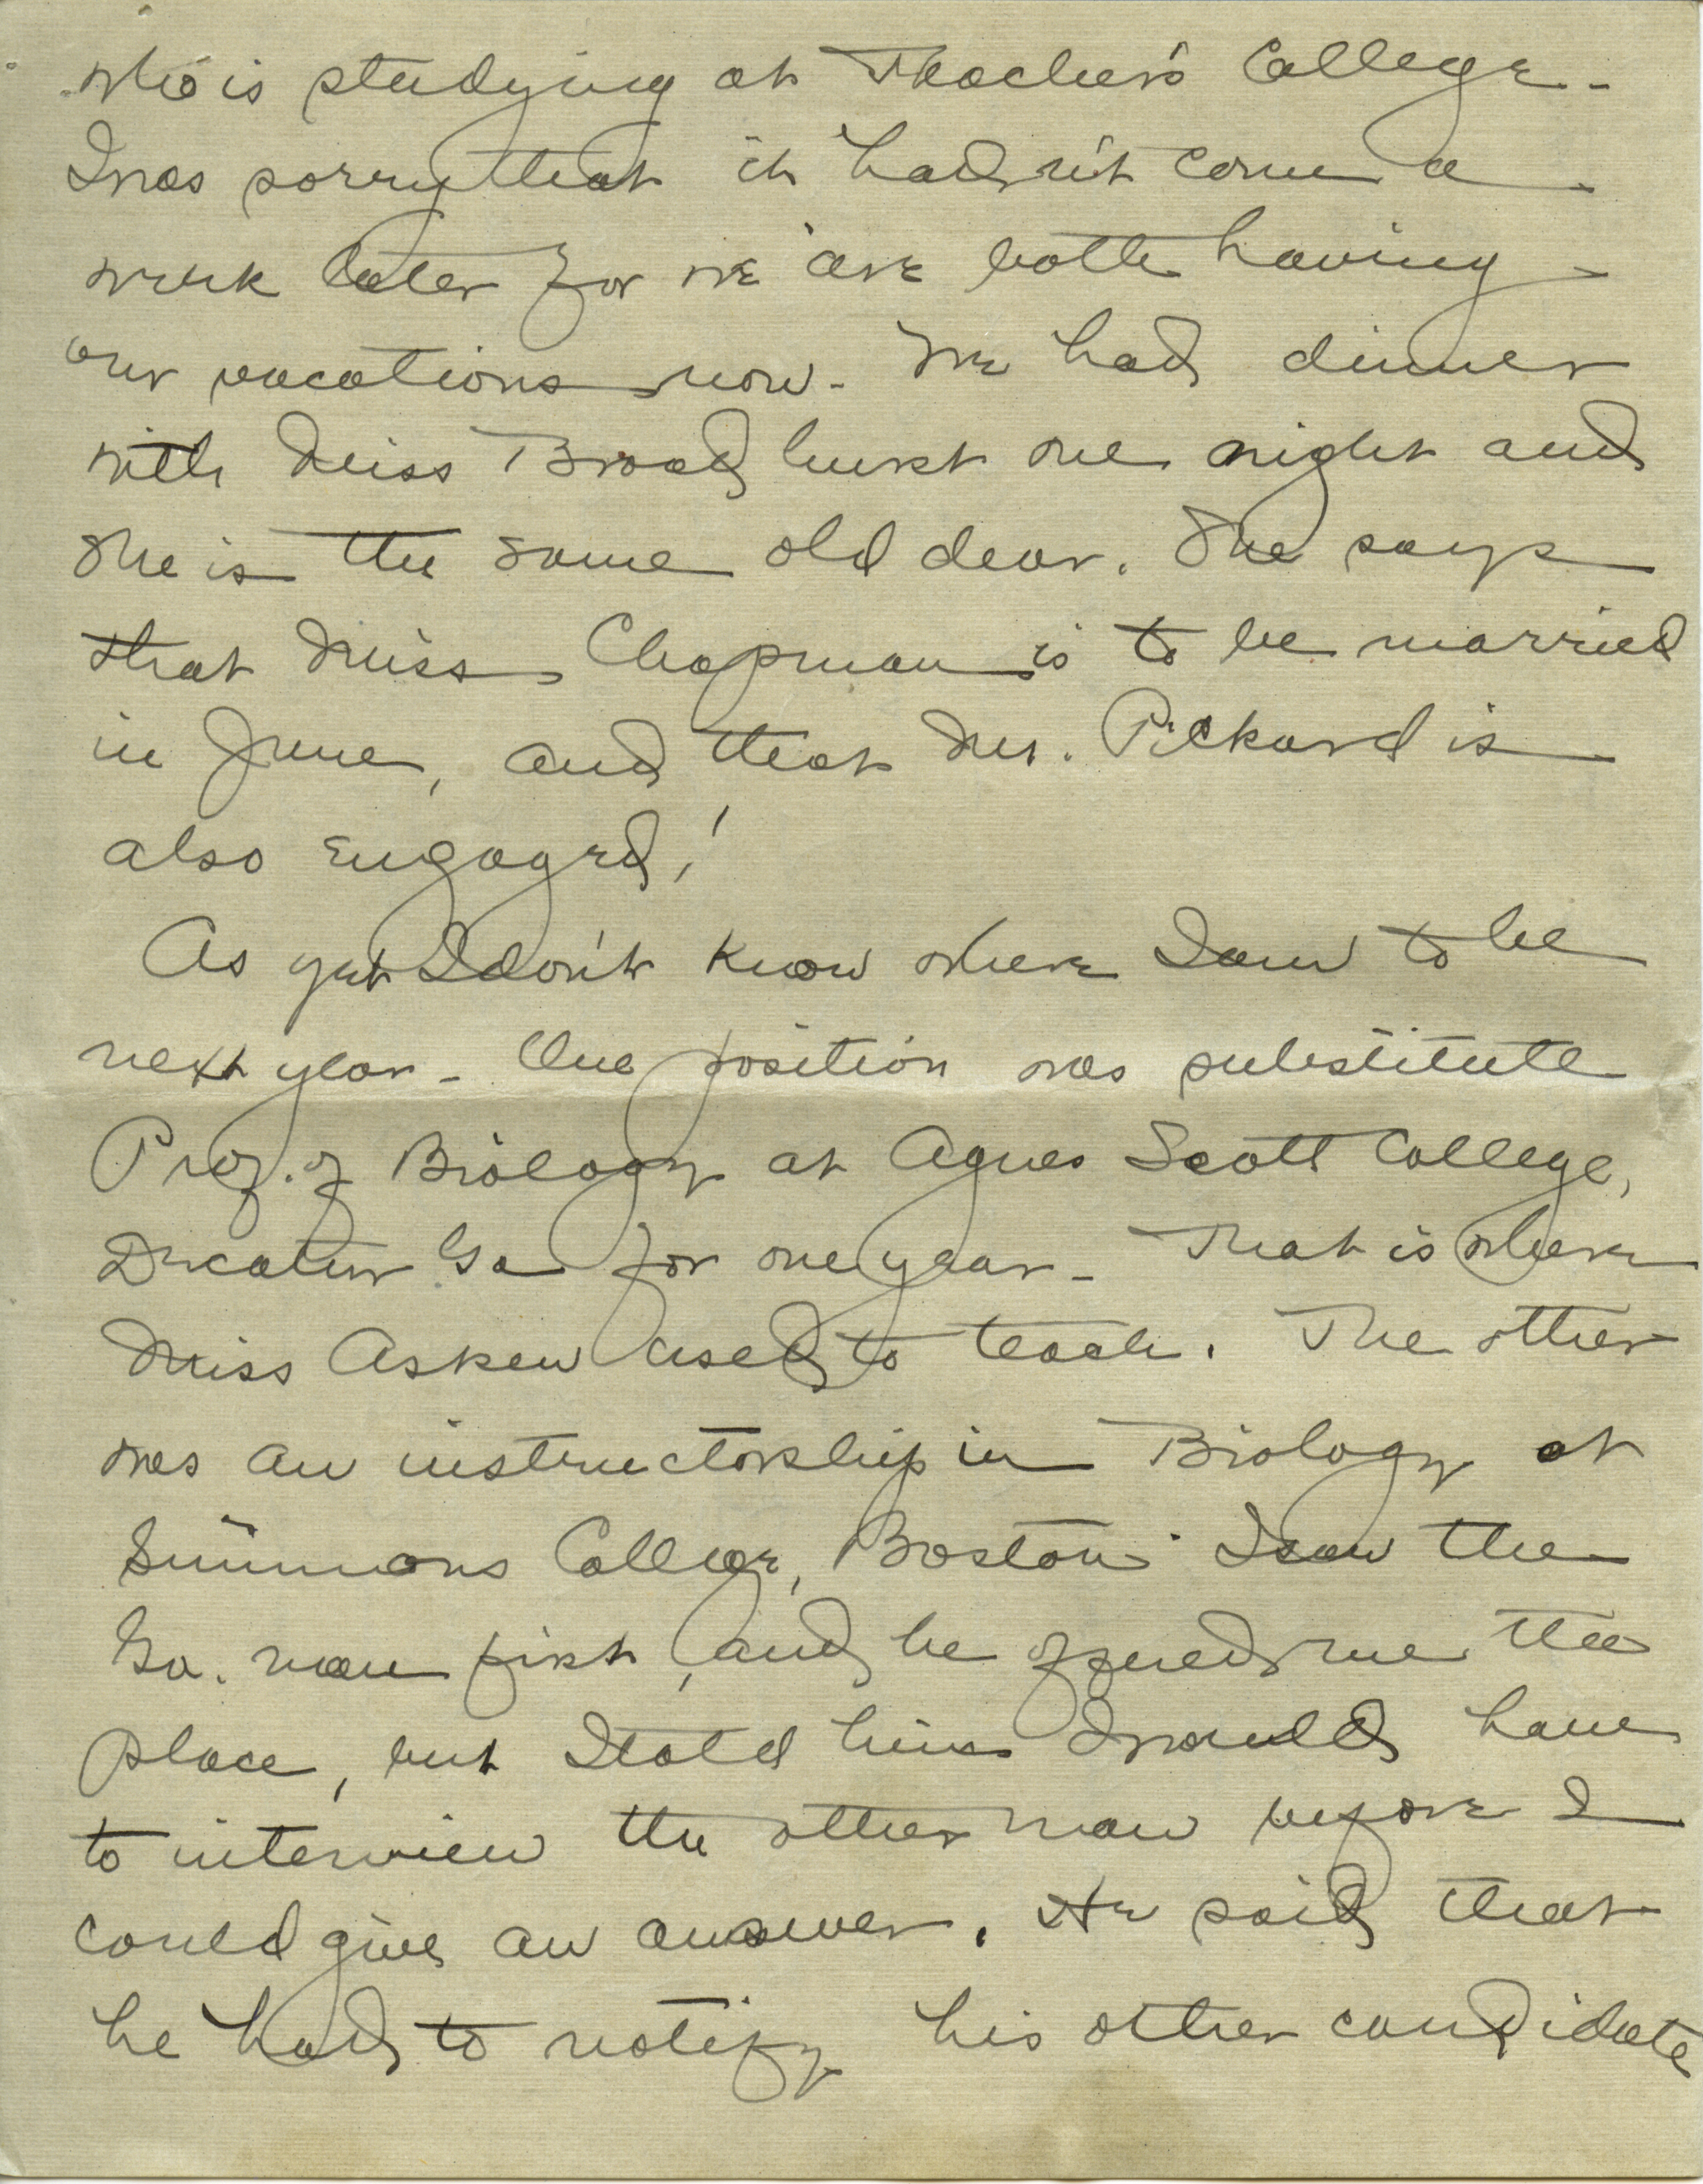 who is studying at Teacher's College -
I was sorry that it hadn't come a
week later for we are both having
our vacations now - We had dinner
with Miss Broadhurst one night and
she is the same old dear. She says
that Miss Chapman is to be married
in June, and that Mr. Pickard is
also engaged!
As yet I don't know where I am to be
next year - One position was substitute
Prof. of Biology at Agnes Scott College,
Decatur Ga for one year - That is where
Miss Askew used to teach. The other
was an instructorship in Biology at
Simmons College, Boston. I saw the
Ga. man first, and he offered me the
place, but I told him I would have
to interview the other man before I
could give an answer. He said that
he had to notify his other candidate